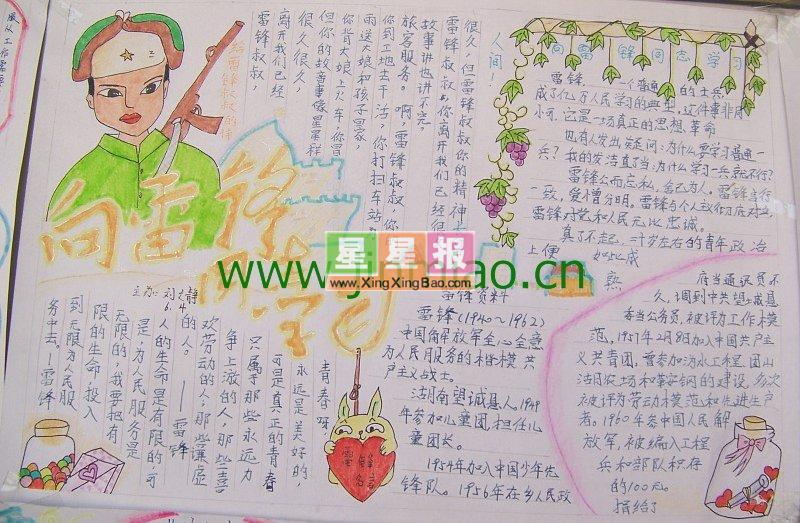 给雷锋叔叔的信
雷锋叔叔,
离开我们已经
很久很久,
但你的故事像星星样
你背大娘上火车,你冒
雨送大娘和孩子回家,
你到工地去干活,你打扫车站
旅客服务。啊,雷锋叔叔,你的
故事讲也讲不完
雷锋叔叔,你离开我们已经很
很久,但雷锋叔叔你的精神
人间!
向雷锋同志学习
向雷锋同志学习
雷锋,一个普通的士兵,
成了亿万人民学习的典型,这件事非同
小可,它是一场真正的思想革命
也有人发出疑问:为什么要学习普通一
兵?我的发法直了当:为什么学习一兵就不行?
雷锋公而忘私,舍己为人。雷锋言行
一致,爱憎分明。雷锋与个人
雷锋对党和人民无比忠诚。
真了不起,二十岁左右的青年政治
上便如此成
熟
星星报
www.XingXingBao.com
www.ji
bao.cn
主办:刘文静
6.4
雷锋资料
雷锋(1940~1962)
中国人民解放军全心全意
为人民服务的楷模共
产主义战士。
湖南望城县人。1949
年参加儿童团,担任儿
童团长。
1954年加入中国少年先
锋队。1956年在乡人民政
府当通讯员不
久,调到中共望城县
委当公务员,被评为工作模
范,1957年2月8日加入中国共产主
义共青团,曾参加沩水工程、团山
湖农场和鞍钢的建设,多次
被评为劳动模范和先进生产
者。1960年参中国人民解
放军,被编入工程
兵和部队积存
的100元。
捐给了
人的生命是有限的,可
是,为人民服务是
无限的,我要把有
限的生命,投入
到无限为人民服
务中去。—雷锋
青春呀
永远是美好的
可是真正的青春
只属于那些永远力
争上游的人,那些喜
欢劳动的人,那些谦虚
的人。
——雷锋